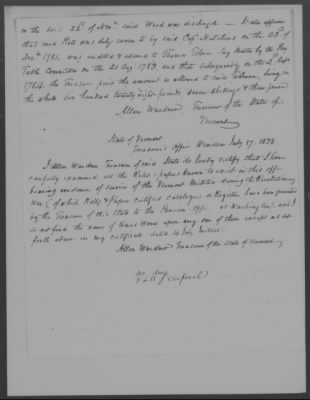 on the said 22d of Novr said Wood was discharged — It also appears
that said Roll was duly sworn to by said Capt on the 28th of
Decr 1781, was audited & allowed to Thomas Tolman Pay Master by the Pay
Table Committee on the 21st Aug. 1783, and that subsequently on the 2d Sept
1784 the Treasurer paid the amount so allowed to said Tolman, being in
the whole Six hundred twenty eight pounds Seven shillings & three pence
Allen Wardner Treasurer of the State of
Vermont
State of Vermont
Treasurer's Office Windsor July 17. 1838
I Allen Wardner Treasurer of said State do hereby certify that I have
carefully examined all the Rolls & papers known to exist in this office
bearing evidence of service of the Vermont Militia during the Revolutionary
war (of which Rolls & papers certified catalogues or Registers have been furnished
by the Treasurer of this State to the Pension Office at Washington) and I
do not find the name of Wood upon any one of them except as set
forth above in my certificate dated July
Allen Wardner Treasurer of the State of Vermont